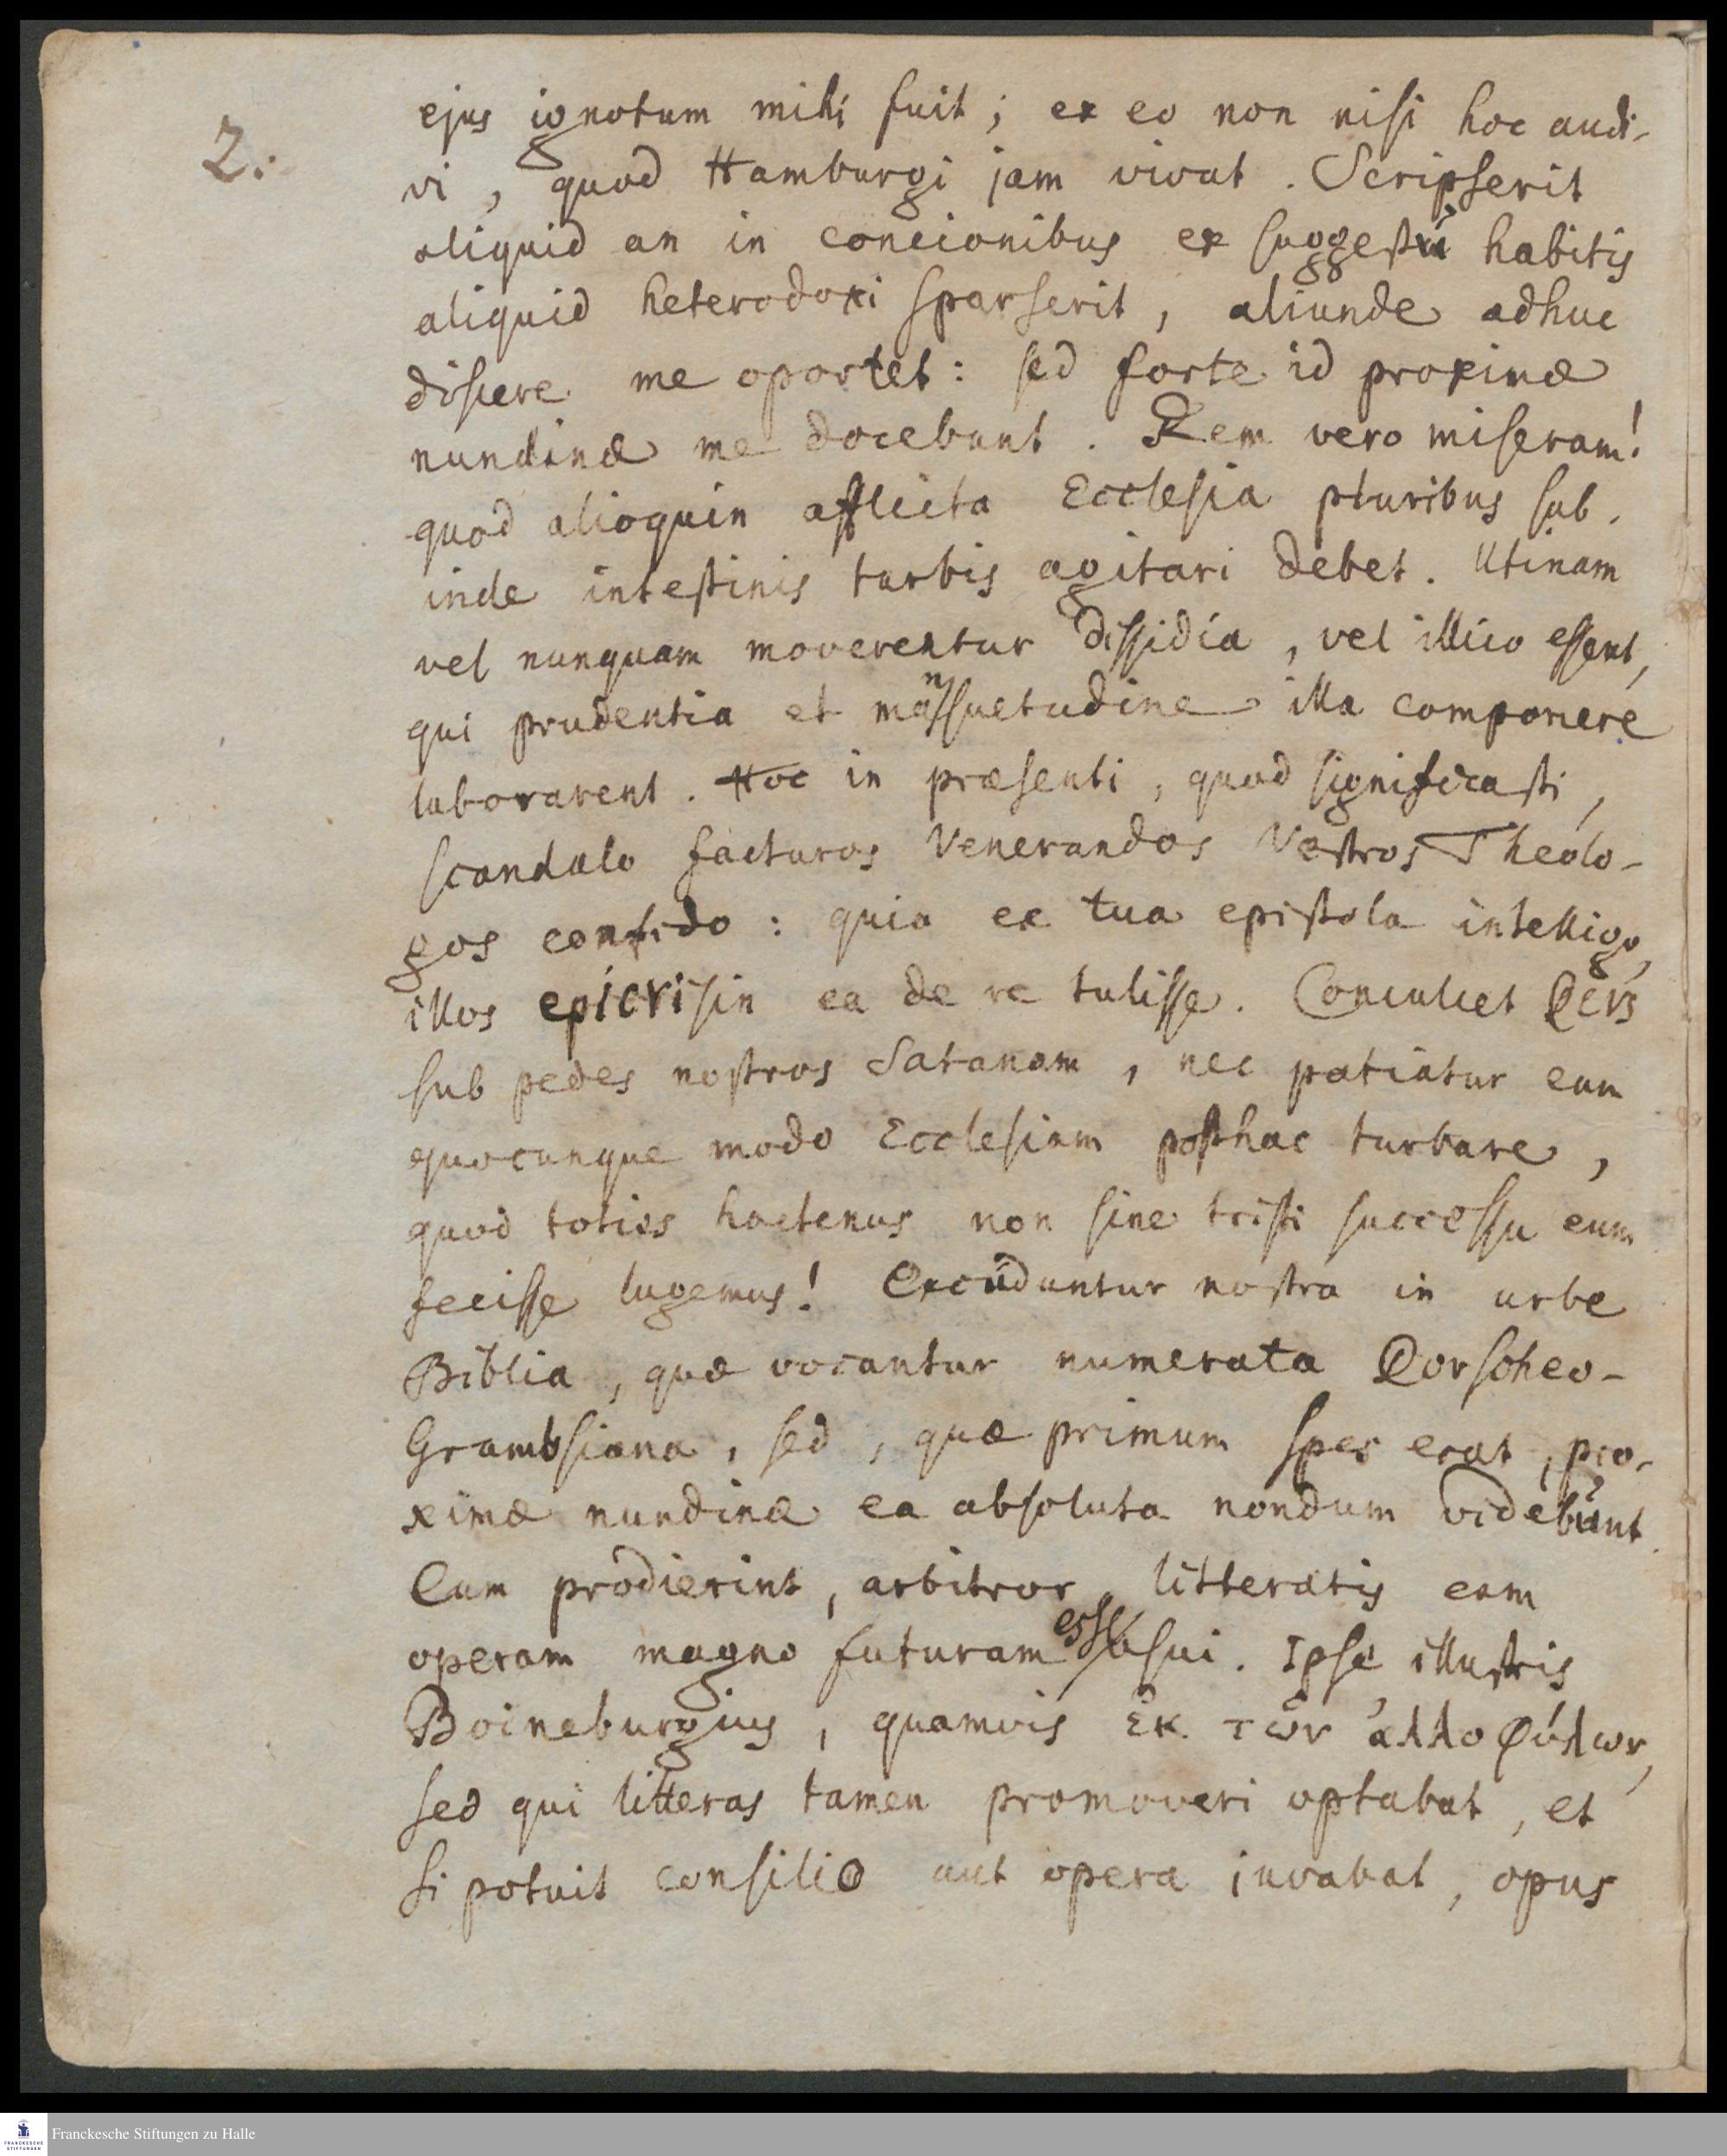 2.
ejus ignotum mihi fuit; ex eo non nisi hoc audi-
vi, quod Hamburgi jam vivat. Scripserit
aliquid an in concionibus ex suggestu habitis
aliquid heterodoxi sparserit, aliunde adhuc
discere me oportet: sed forte id proximæ
nundinæ me docebunt. Rem vero miseram!
quod alioquin afflicta Ecclesia pluribus sub-
inde intestinis turbis agitari debet. Utinam
vel nunquam moverentur dissidia, vel illico essent,
qui prudentia et mansuetudine illa componere
laborarent. Hoc in præsenti, quod significasti,
scandalo facturos Venerandos Vestros Theolo-
gos confido: quia ex tua epistola intelligo,
illos epicrisin ea de re tulisse. Conculcet DEVS
sub pedes nostros Satanam, nec patiatur eum
quocunque modo Ecclesiam posthac turbare,
quod toties hactenus non sine tristi successu eum
fecisse lugemus! Excuduntur nostra in urbe
Biblia, quæ vocantur numerata Dorscheo-
Grambsiana, sed, quæ primum spes erat, pro-
ximæ nundinæ ea absoluta nondum videbunt.
Cum prodierint, arbitror, litteratis eam
operam magno futuram esse usui. Ipse illustris
Boineburgius, quamvis ἐκ τῶν ἀλλοφύλων,
sed qui litteras tamen promoveri optabat, et
si potuit consilio aut opera juvabat, opus
Franckesche Stiftungen zu Halle
FRANCKESCHE
STIFTUNGEN